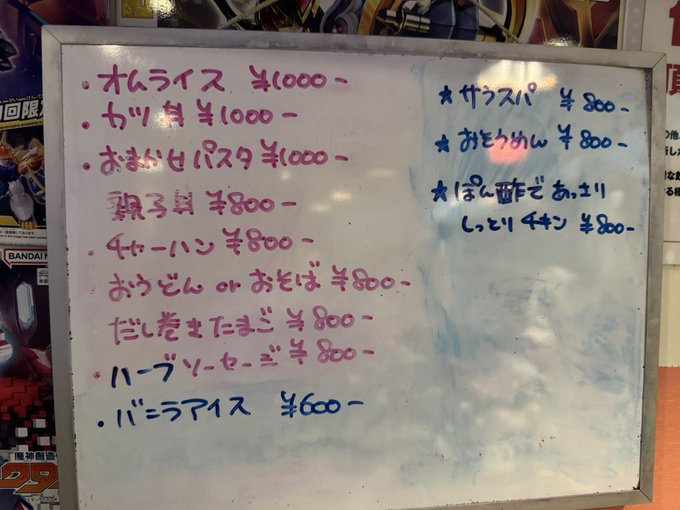 ・オムライス ¥1000-
・カツ丼 ¥1000-
・おまかせパスタ ¥1000-
親子丼 ¥800-
・チャーハン ¥800-
おうどん or おそば ¥800-
だし巻きたまご ¥800-
・ハーブソーセージ ¥800-
・バニラアイス ¥600-
★サラスパ ¥800-
★おそうめん ¥800-
★ぽん酢であっさり
しっとりチキン ¥800-
BANDAI N
魔神創造